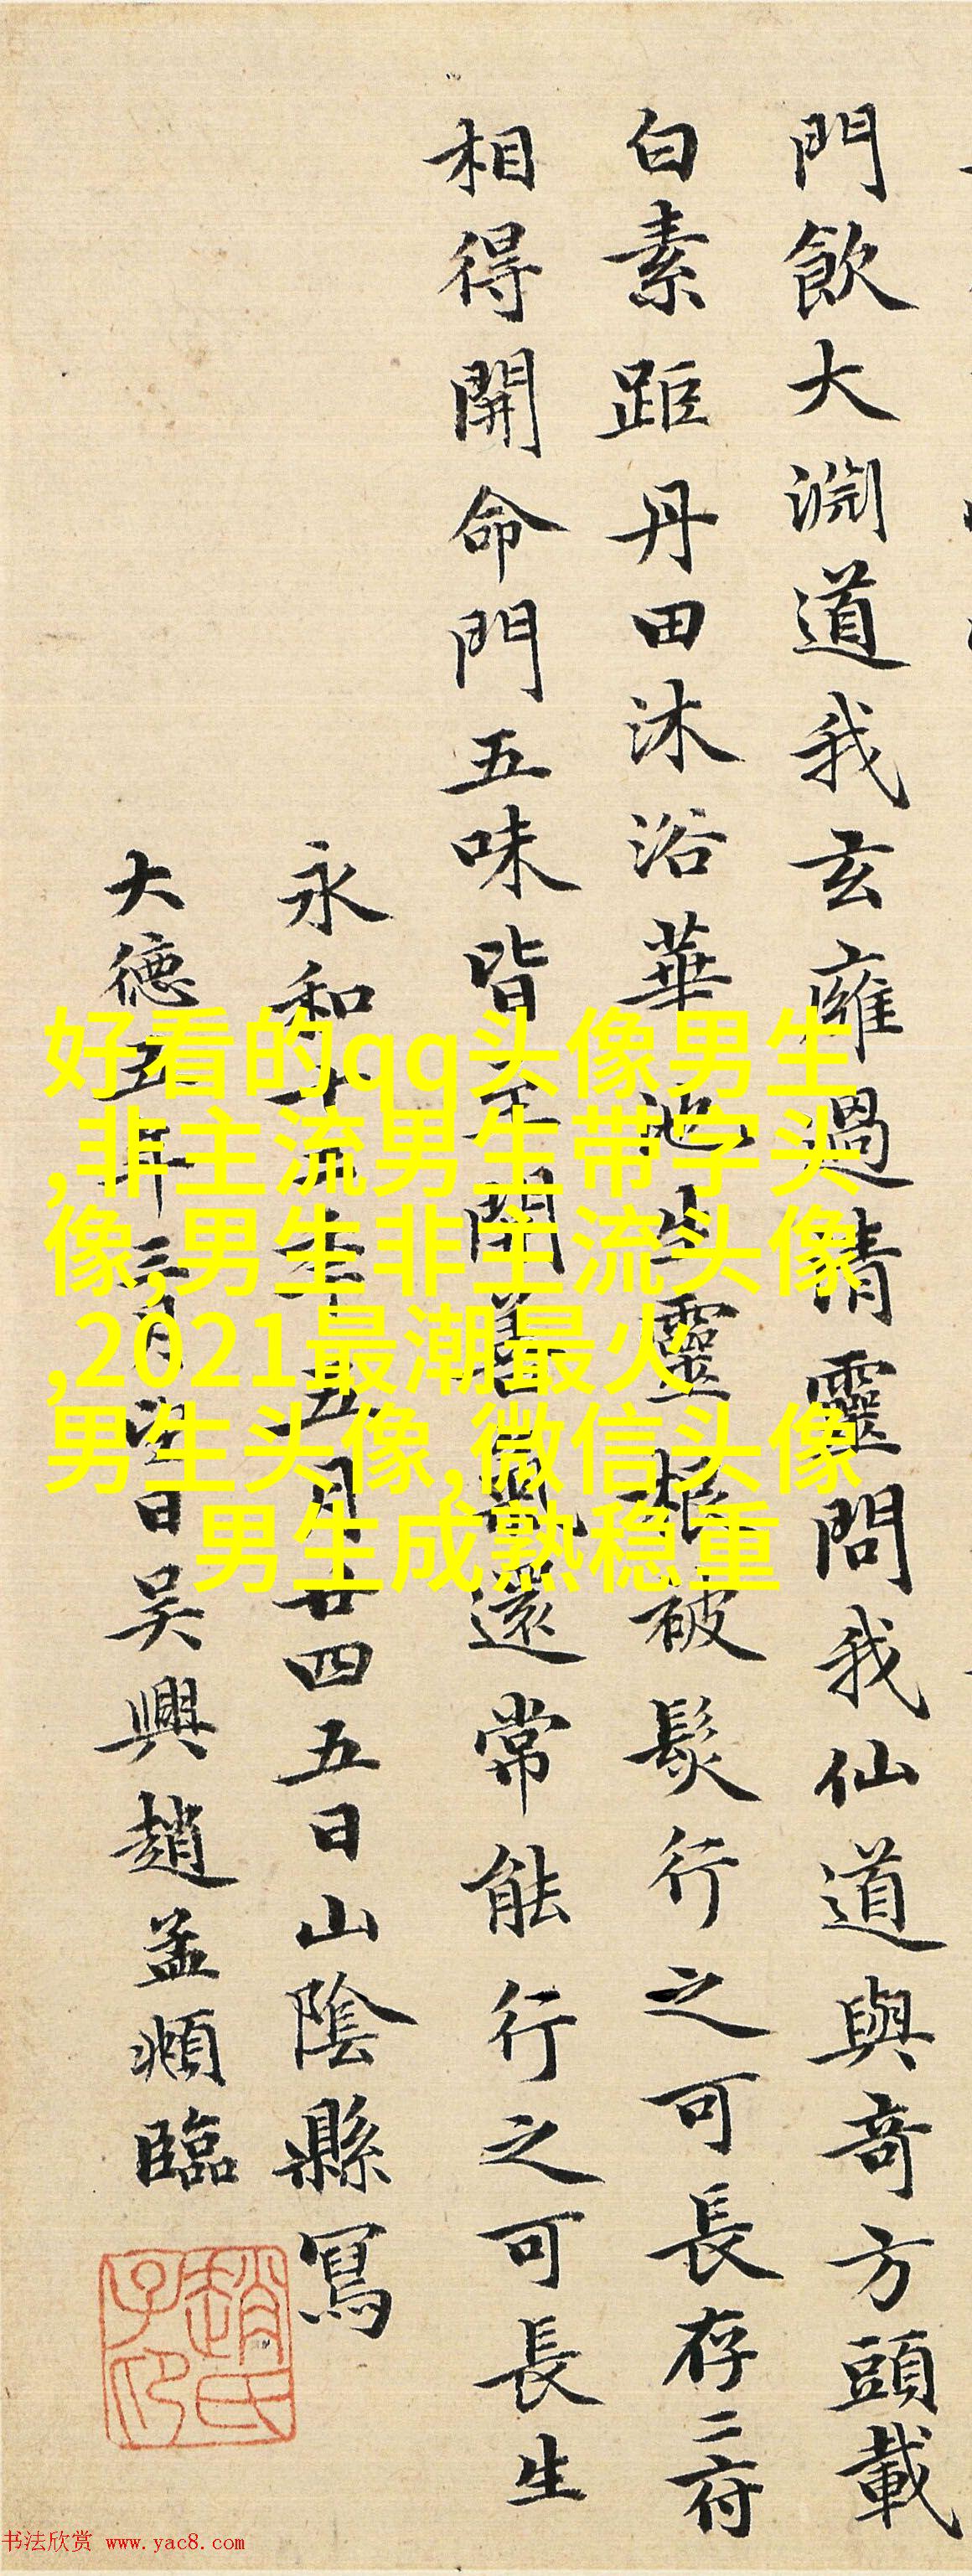 門飲大淵道我玄廱過清靈問我仙道與奇方頭載
白素距丹田沐浴華池生靈根被髮行之可長存二府
相得開命門五味皆至開善氣還常能行之可長生
永和十二年五月廿四五日山陰縣寫
大德五年三月望日吴興趙孟頫臨
趙氏子昂
好看的qq头像男生
,非主流男生带字头
像,男生非主流头像
,2021最潮最火
男生头像,微信头像
男生成熟稳重
书法欣赏 www.yac8.com